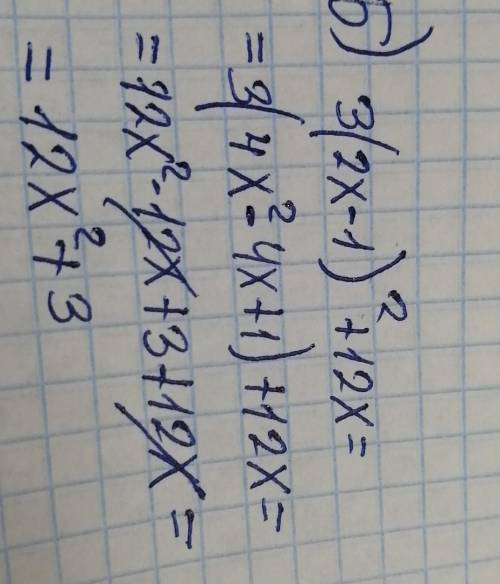 б) 3(2x-1)² +12x=
=3(4x²-4x+1)+12x=
=12x²-12x+3+12x=
=12x²+3